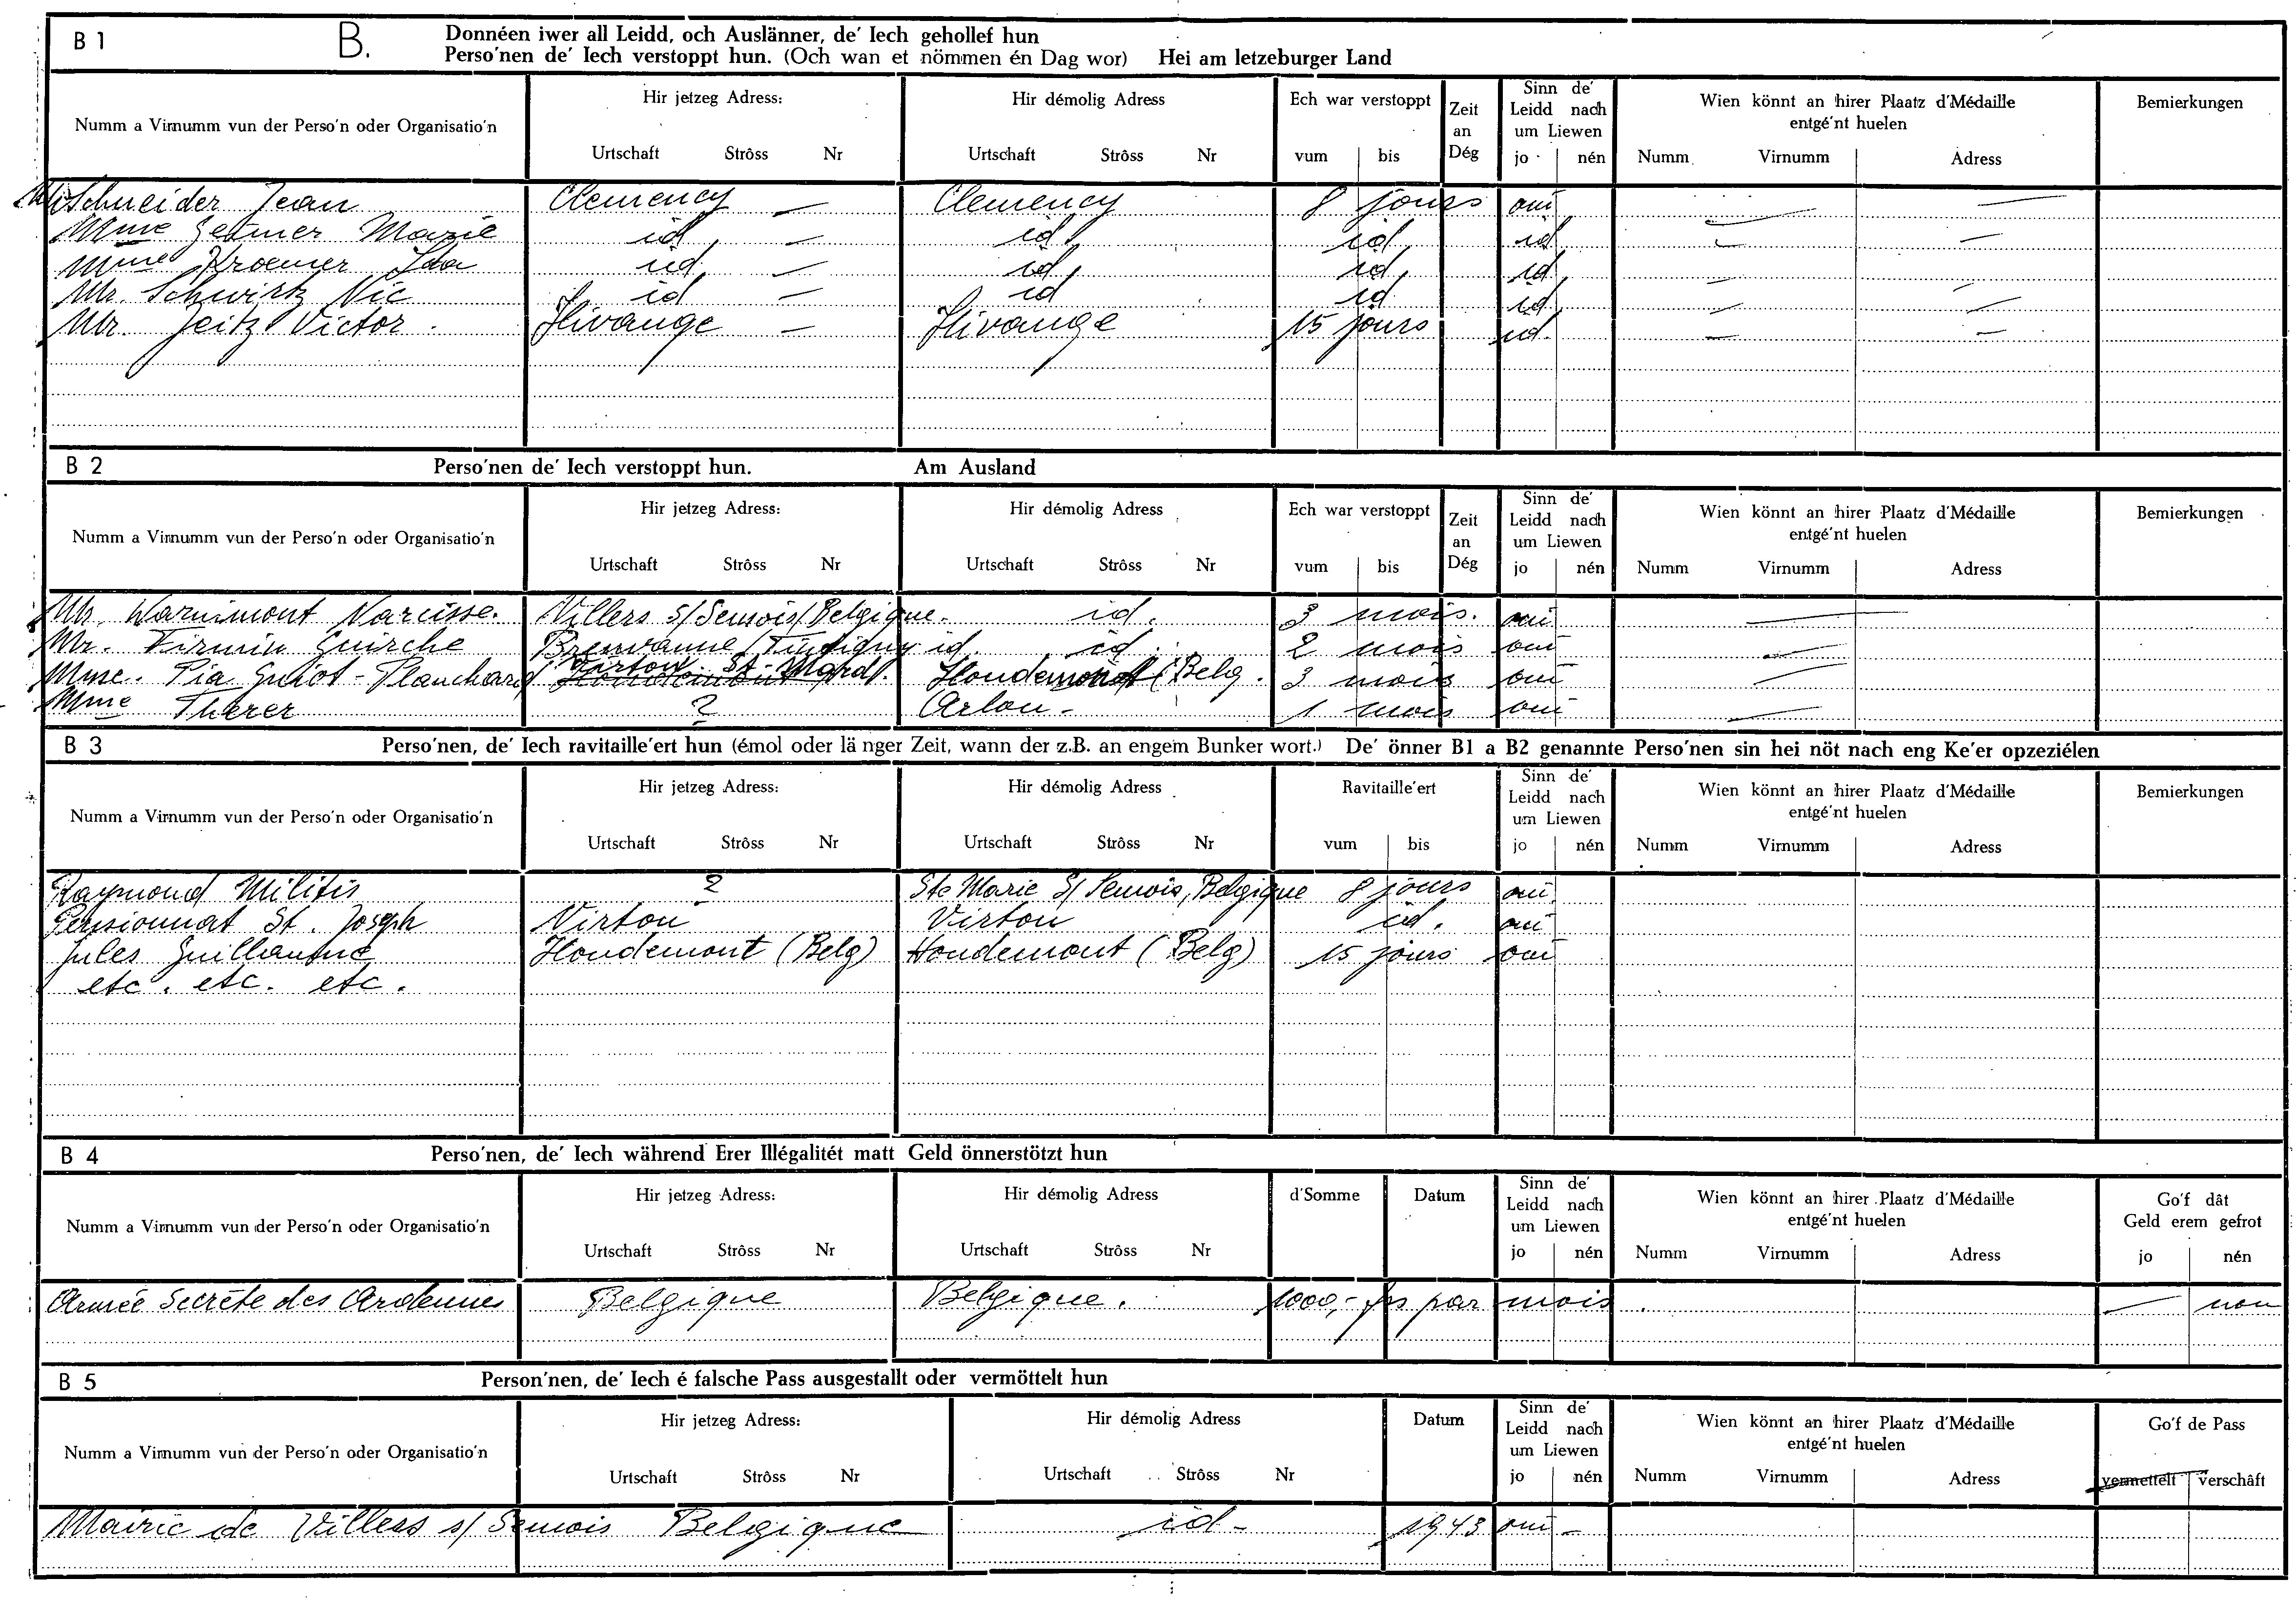 B 1 B. Donnéen iwer all Leidd, och Auslänner, de' Iech gehollef hun
Perso'nen de' Iech verstoppt hun. (Och wan et nömmen én Dag wor) Hei am letzeburger Land
Numm a Virnumm vun der Perso'n oder Organisatio'n Hir jetzeg Adress: Hir démolig Adress Ech war verstoppt Zeit an Dég Sinn de' Leidd nach um Liewen Wien könnt an hirer Plaatz d'Médaille entgé'nt huelen Bemierkungen
Urtschaft Strôss Nr Urtschaft Strôss Nr vum bis jo nén Numm Virnumm Adress
Schneider Jean Clemency — Clemency 8 jours oui — —
Mme Marie id — id. id id — —
Mme Kroemer id, — id, id, id, — —
Mr. Schwirtz Nic id — id id id — —
Mr. Jeitz Victor. Hivange — Hivange 15 jours id. — —
B 2 Perso'nen de' Iech verstoppt hun. Am Ausland
Numm a Virnumm vun der Perso'n oder Organisatio'n Hir jetzeg Adress: Hir démolig Adress Ech war verstoppt Zeit an Dég Sinn de' Leidd nach um Liewen Wien könnt an hirer Plaatz d'Médaille entgé'nt huelen Bemierkungen
Urtschaft Strôss Nr Urtschaft Strôss Nr vum bis jo nén Numm Virnumm Adress
Mr. Warnimont Narcisse. Villers s/Semois/Belgique. id. 3 mois. oui —
Mr. Firmin Guirche Tintigny id. id. 2 mois oui —
Mme. Pia Guiot-Planchard Virton. St-Mard. Houdemont (Belg. 3 mois oui —
Mme Therer ? Arlon - 1 mois oui —
B 3 Perso'nen, de' Iech ravitaille'ert hun (émol oder länger Zeit, wann der z.B. an engem Bunker wort.) De' önner B1 a B2 genannte Perso'nen sin hei nöt nach eng Ke'er opzeziélen
Numm a Virnumm vun der Perso'n oder Organisatio'n Hir jetzeg Adress: Hir démolig Adress Ravitaille'ert Sinn de' Leidd nach um Liewen Wien könnt an hirer Plaatz d'Médaille entgé'nt huelen Bemierkungen
Urtschaft Strôss Nr Urtschaft Strôss Nr vum bis jo nén Numm Virnumm Adress
Raymond Militis ? Ste Marie S/Semois, Belgique 8 jours oui
Pensionnat St. Joseph Virton Virton id. oui
Jules Guillaume Houdemont (Belg) Houdemont (Belg) 15 jours oui
etc. etc. etc.
B 4 Perso'nen, de' Iech während Erer Illégalitét matt Geld önnerstötzt hun
Numm a Virnumm vun der Perso'n oder Organisatio'n Hir jetzeg Adress: Hir démolig Adress d'Somme Datum Sinn de' Leidd nach um Liewen Wien könnt an hirer Plaatz d'Médaille entgé'nt huelen Go'f dât Geld erem gefrot
Urtschaft Strôss Nr Urtschaft Strôss Nr jo nén Numm Virnumm Adress jo nén
Armée Secrète des Ardennes Belgique Belgique. 1000,- frs par mois. — non
B 5 Person'nen, de' Iech é falsche Pass ausgestallt oder vermöttelt hun
Numm a Virnumm vun der Perso'n oder Organisatio'n Hir jetzeg Adress: Hir démolig Adress Datum Sinn de' Leidd nach um Liewen Wien könnt an hirer Plaatz d'Médaille entgé'nt huelen Go'f de Pass
Urtschaft Strôss Nr Urtschaft Strôss Nr jo nén Numm Virnumm Adress vermettelt verschâft
Mairie de Villers s/Semois Belgique id- 1943 oui -